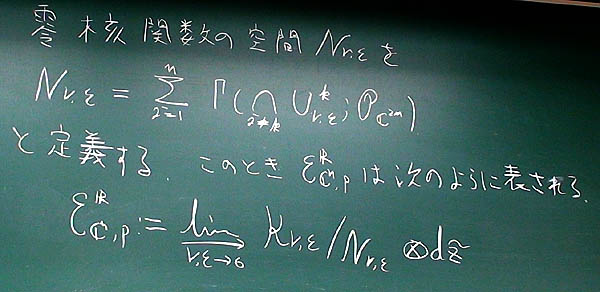 零核関数の空間 N_{r,ε} を
N_{r,ε} = \sum_{i=1}^{n} Γ(\bigcap_{i≠k} U^{k}_{r,ε}; O_{ℂ^{2n}})
と定義する. このとき ε^{ℝ}_{ℂ^n,p} は次のように表される.
ε^{ℝ}_{ℂ^n,p} := \varinjlim_{r,ε→0} K_{r,ε}/N_{r,ε} ⊗ d